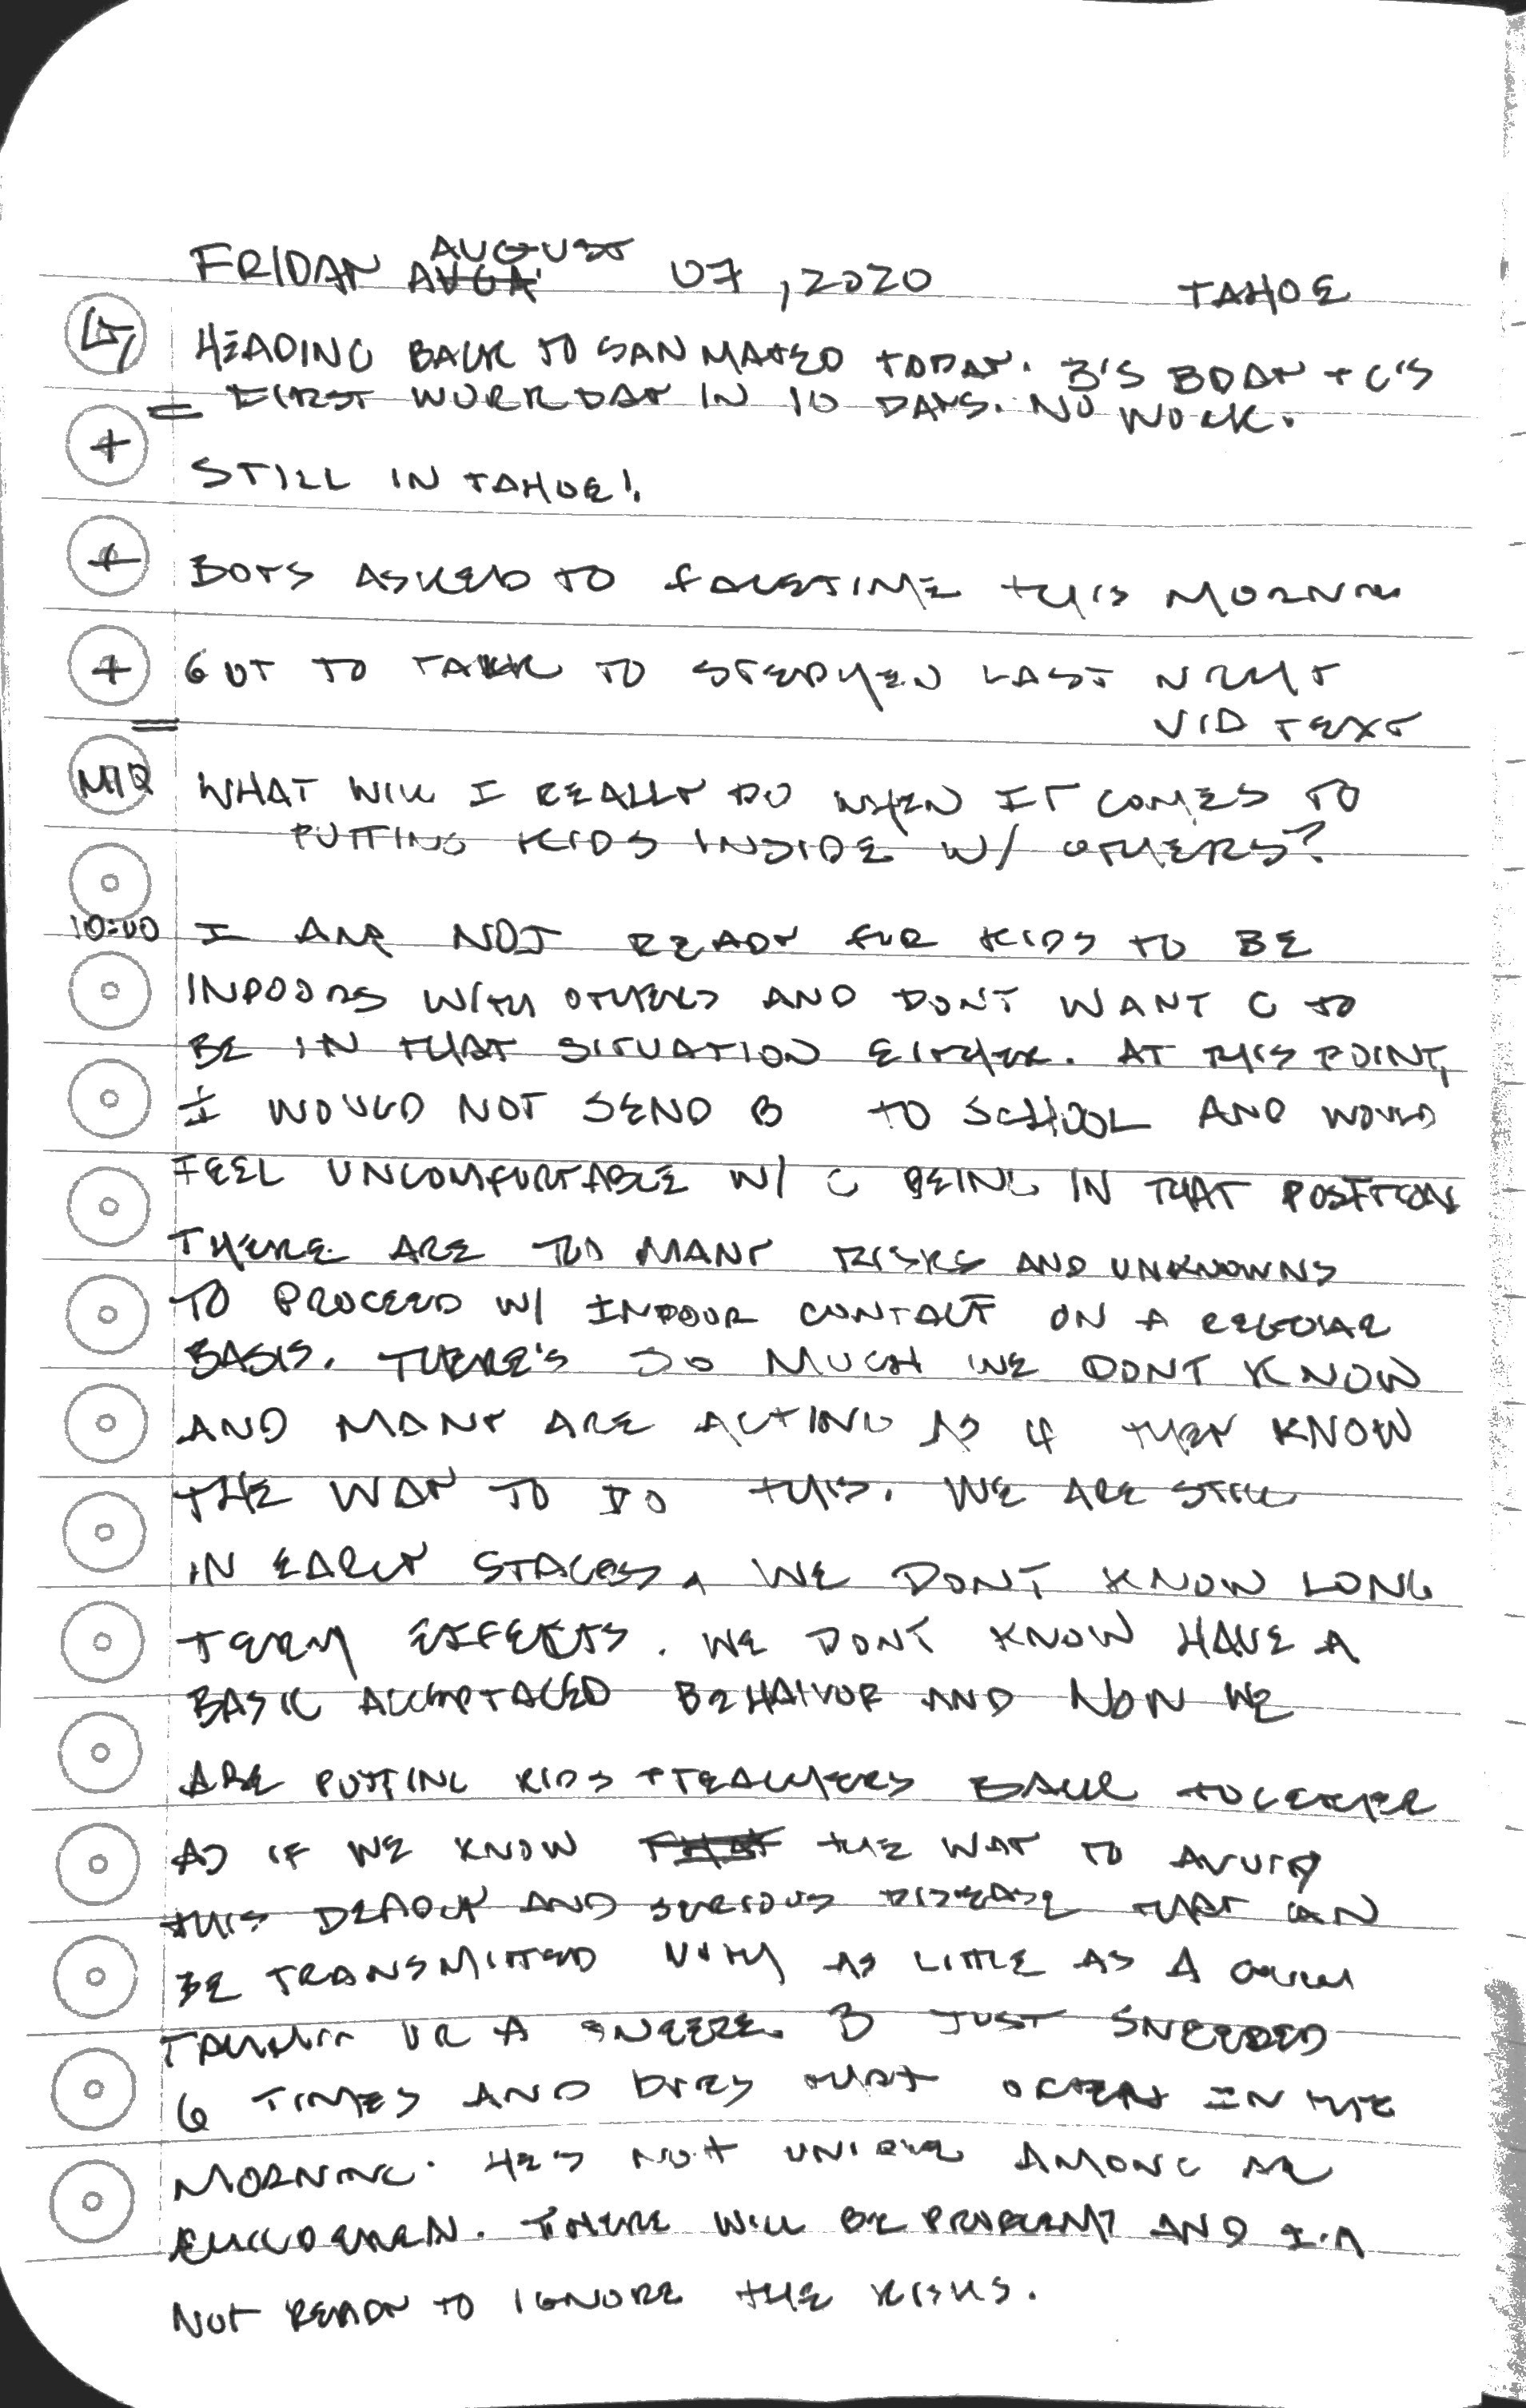 FRIDAY AUGUST 07, 2020 TAHOE
HEADING BACK TO SAN MATEO TODAY. B'S BDAY + C'S
= FIRST WORK DAY IN 10 DAYS. NO WORK.
+ STILL IN TAHOE!
+ BOYS ASKED TO FACETIME THIS MORNING
+ GOT TO TALK TO STEPHEN LAST NIGHT
= VID TEXT
MIQ WHAT WILL I REALLY DO WHEN IT COMES TO
PUTTING KIDS INSIDE W/ OTHERS?
10:00 I AM NOT READY FOR KIDS TO BE
INDOORS WITH OTHERS AND DONT WANT C TO
BE IN THAT SITUATION EITHER. AT THIS POINT,
I WOULD NOT SEND B TO SCHOOL AND WOULD
FEEL UNCOMFORTABLE W/ C BEING IN THAT POSITION
THERE ARE TOO MANY RISKS AND UNKNOWNS
TO PROCEED W/ INDOOR CONTACT ON A REGULAR
BASIS. THERE'S SO MUCH WE DONT KNOW
AND MANY ARE ACTING AS IF THEY KNOW
THE WAY TO DO THIS. WE ARE STILL
IN EARLY STAGES, WE DONT KNOW LONG
TERM EFFECTS. WE DONT KNOW HAVE A
BASIC ACCEPTACED BEHAIVOR AND NOW WE
ARE PUTTING KIDS + TEACHERS BACK TOGETHER
AS IF WE KNOW THE WAY TO AVOID
THIS DEADLY AND SERIOUS DISEASE THAT CAN
BE TRANSMITTED WITH AS LITTLE AS A
TALKING OR A SNEEZE. B JUST SNEEZED
6 TIMES AND DOES THAT OFTEN IN THE
MORNING. HES NOT UNIQUE AMONG
CHILDREN. THERE WILL BE PROBLEMS AND I'M
NOT READY TO IGNORE THE RISKS.